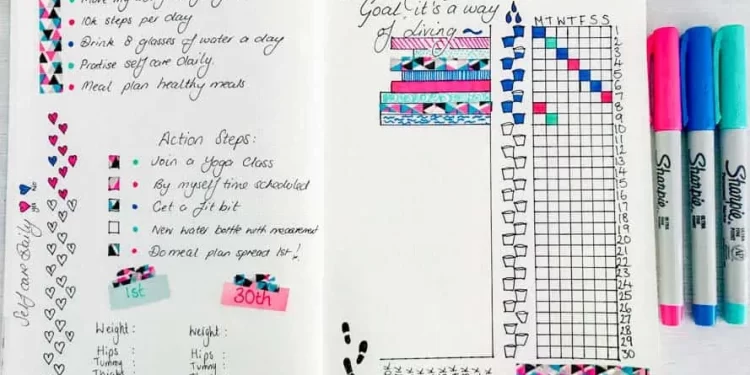 10k steps per day
Drink 8 glasses of water a day
Practise self care daily.
Meal plan healthy meals
Action Steps:
Join a Yoga Class
By myself time scheduled
Get a fit bit
New water bottle with measurement
Do meal plan spread 1st!
Self care daily
yes no
1st
30th
Weight :
Hips :
Tummy :
Weight :
Hips :
Tummy :
Goal: it's a way
of living
M T W T F S S
1
2
3
4
5
6
7
8
9
10
11
12
13
14
15
16
17
18
19
20
21
22
23
24
25
26
27
28
29
30
Sharpie
Sharpie
Sharpie